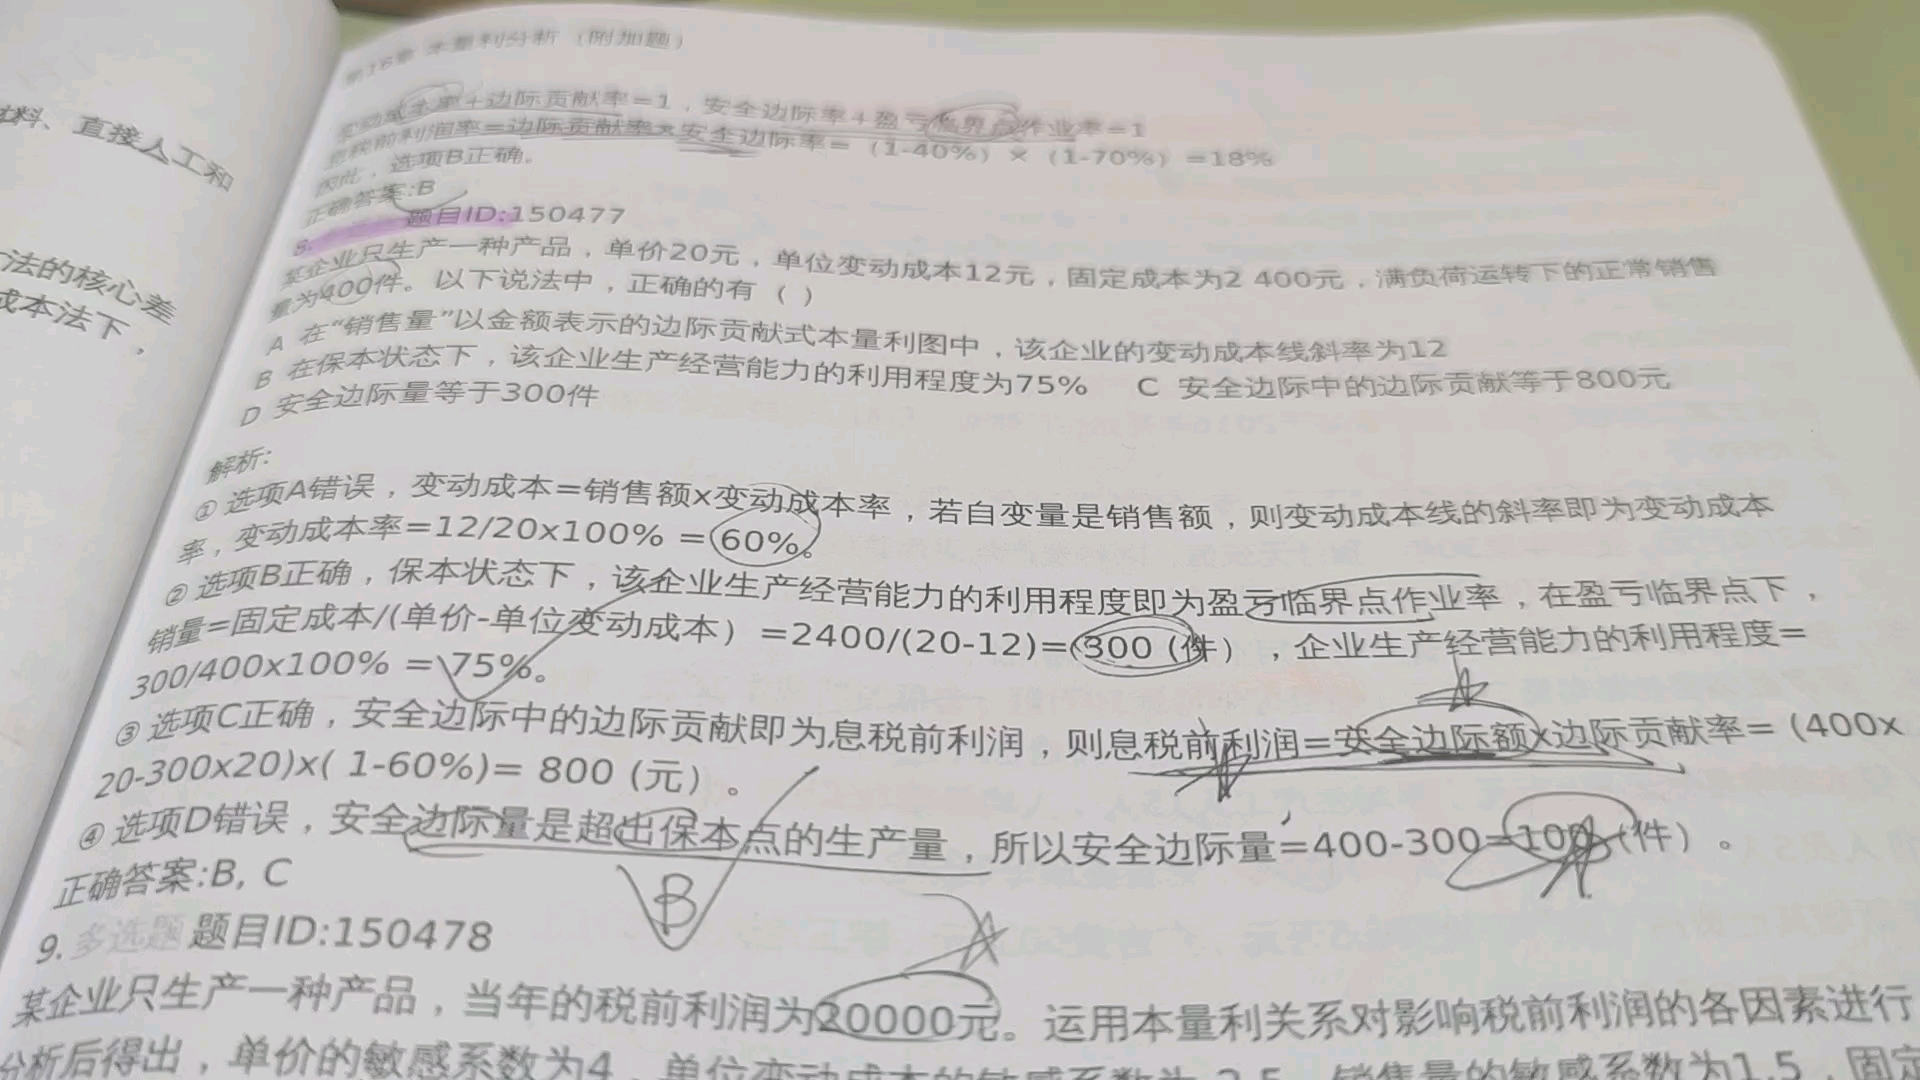 材料、直接人工和
法的核心差
成本法下，
第16章 本量利分析（附加题）
变动成本率+边际贡献率=1，安全边际率+盈亏临界点作业率=1
息税前利润率=边际贡献率×安全边际率=（1-40%）×（1-70%）=18%
因此，选项B正确。
正确答案:B
8. 题目ID:150477
某企业只生产一种产品，单价20元，单位变动成本12元，固定成本为2 400元，满负荷运转下的正常销售
量为400件。以下说法中，正确的有（ ）
A 在“销售量”以金额表示的边际贡献式本量利图中，该企业的变动成本线斜率为12
B 在保本状态下，该企业生产经营能力的利用程度为75% C 安全边际中的边际贡献等于800元
D 安全边际量等于300件
解析:
① 选项A错误，变动成本=销售额x变动成本率，若自变量是销售额，则变动成本线的斜率即为变动成本
率，变动成本率=12/20x100% =60%。
② 选项B正确，保本状态下，该企业生产经营能力的利用程度即为盈亏临界点作业率，在盈亏临界点下，
销量=固定成本/(单价-单位变动成本）=2400/(20-12)=300 (件），企业生产经营能力的利用程度=
300/400x100% = 75%。
③ 选项C正确，安全边际中的边际贡献即为息税前利润，则息税前利润=安全边际额x边际贡献率= (400x
20-300x20)x( 1-60%)= 800 (元）。
④ 选项D错误，安全边际量是超出保本点的生产量，所以安全边际量=400-300=100 (件）。
正确答案:B, C
B
9. 多选题 题目ID:150478
某企业只生产一种产品，当年的税前利润为20000元。运用本量利关系对影响税前利润的各因素进行
分析后得出，单价的敏感系数为4，单位变动成本的敏感系数为-2.5，销售量的敏感系数为1.5，固定